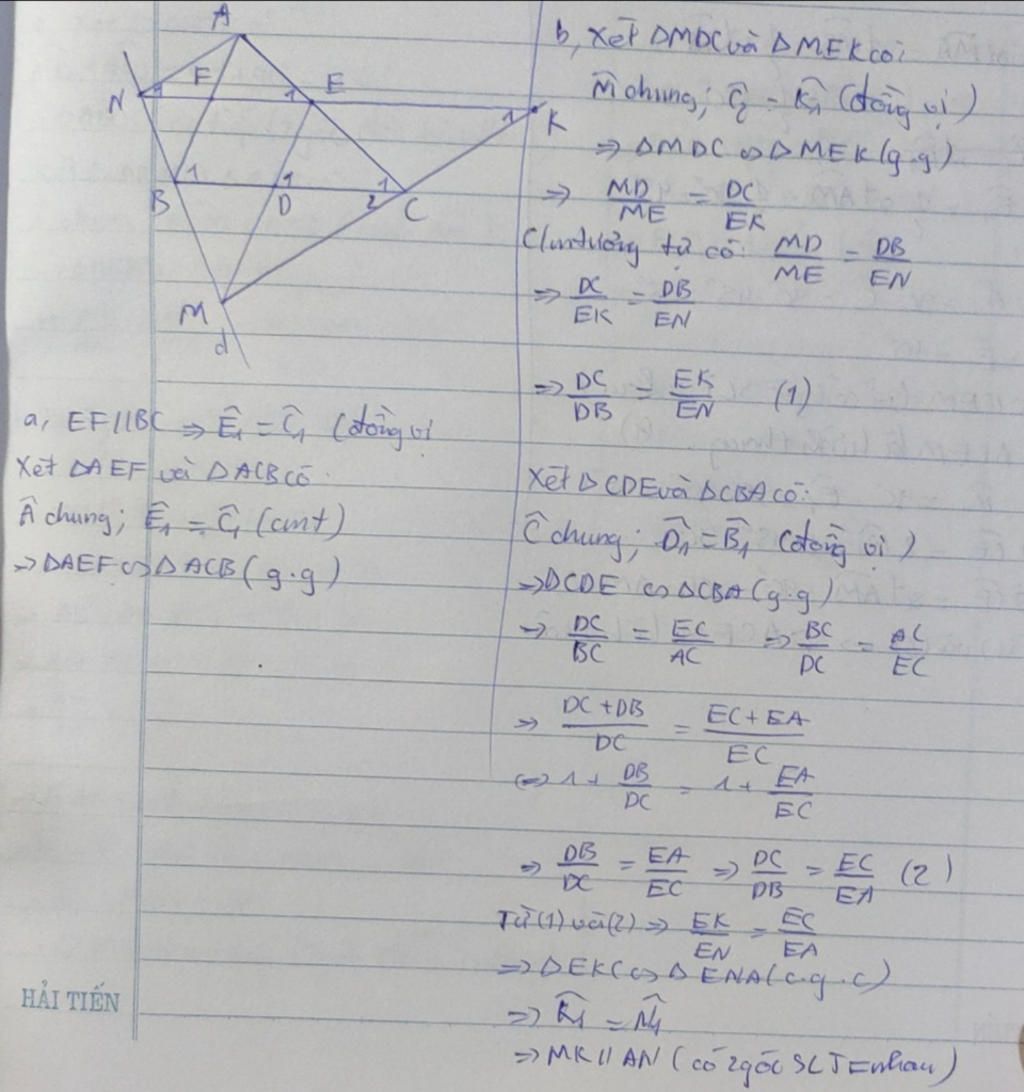 A
N
F
E
1
1
1
K
B
1
D
1
1
2
C
M
d
a, EF//BC ⇒ Ê₁ = Ĉ₁ (đồng vị
Xét ΔAEF và ΔACB có
 chung; Ê₁ = Ĉ₁ (cmt)
⇒ ΔAEF ∽ ΔACB (g.g)
b, Xét ΔMDC và ΔMEK có:
M̂ chung; Ĉ₂ = K̂₁ (đồng vị)
⇒ ΔMDC ∽ ΔMEK (g.g)
⇒ MD/ME = DC/EK
C/m tương tự có: MD/ME = DB/EN
⇒ DC/EK = DB/EN
⇒ DC/DB = EK/EN (1)
Xét ΔCDE và ΔCBA có:
Ĉ chung; D̂₁ = B̂₁ (đồng vị)
⇒ ΔCDE ∽ ΔCBA (g.g)
⇒ DC/BC = EC/AC ⇒ BC/DC = AC/EC
⇒ DC + DB/DC = EC + EA/EC
⇔ 1 + DB/DC = 1 + EA/EC
⇒ DB/DC = EA/EC ⇒ DC/DB = EC/EA (2)
Từ (1) và (2) ⇒ EK/EN = EC/EA
⇒ ΔEKC ∽ ΔENA (c.g.c)
⇒ K̂₁ = N̂₁
⇒ MK // AN (có 2 góc SLT = nhau)
HẢI TIẾN